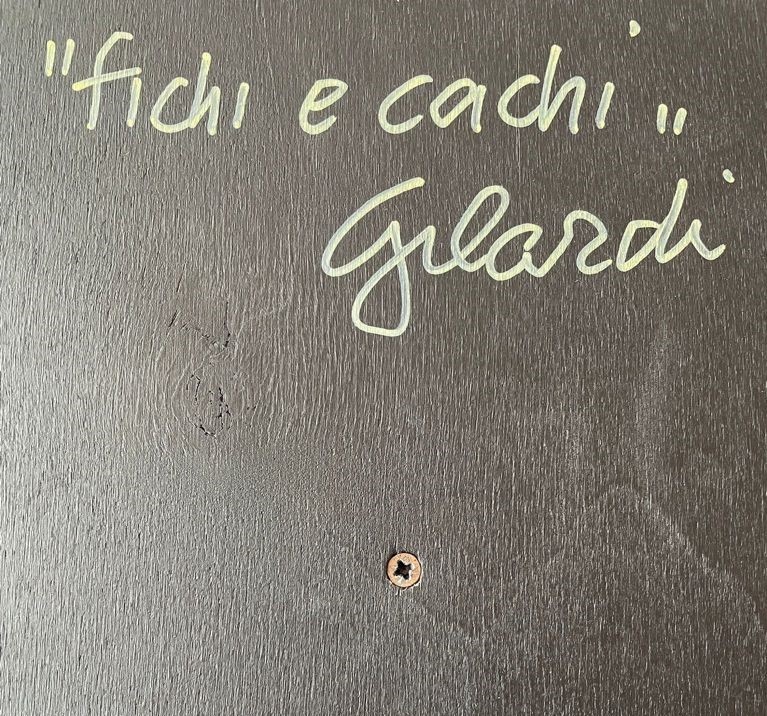 "fichi e cachi"
Gilardi